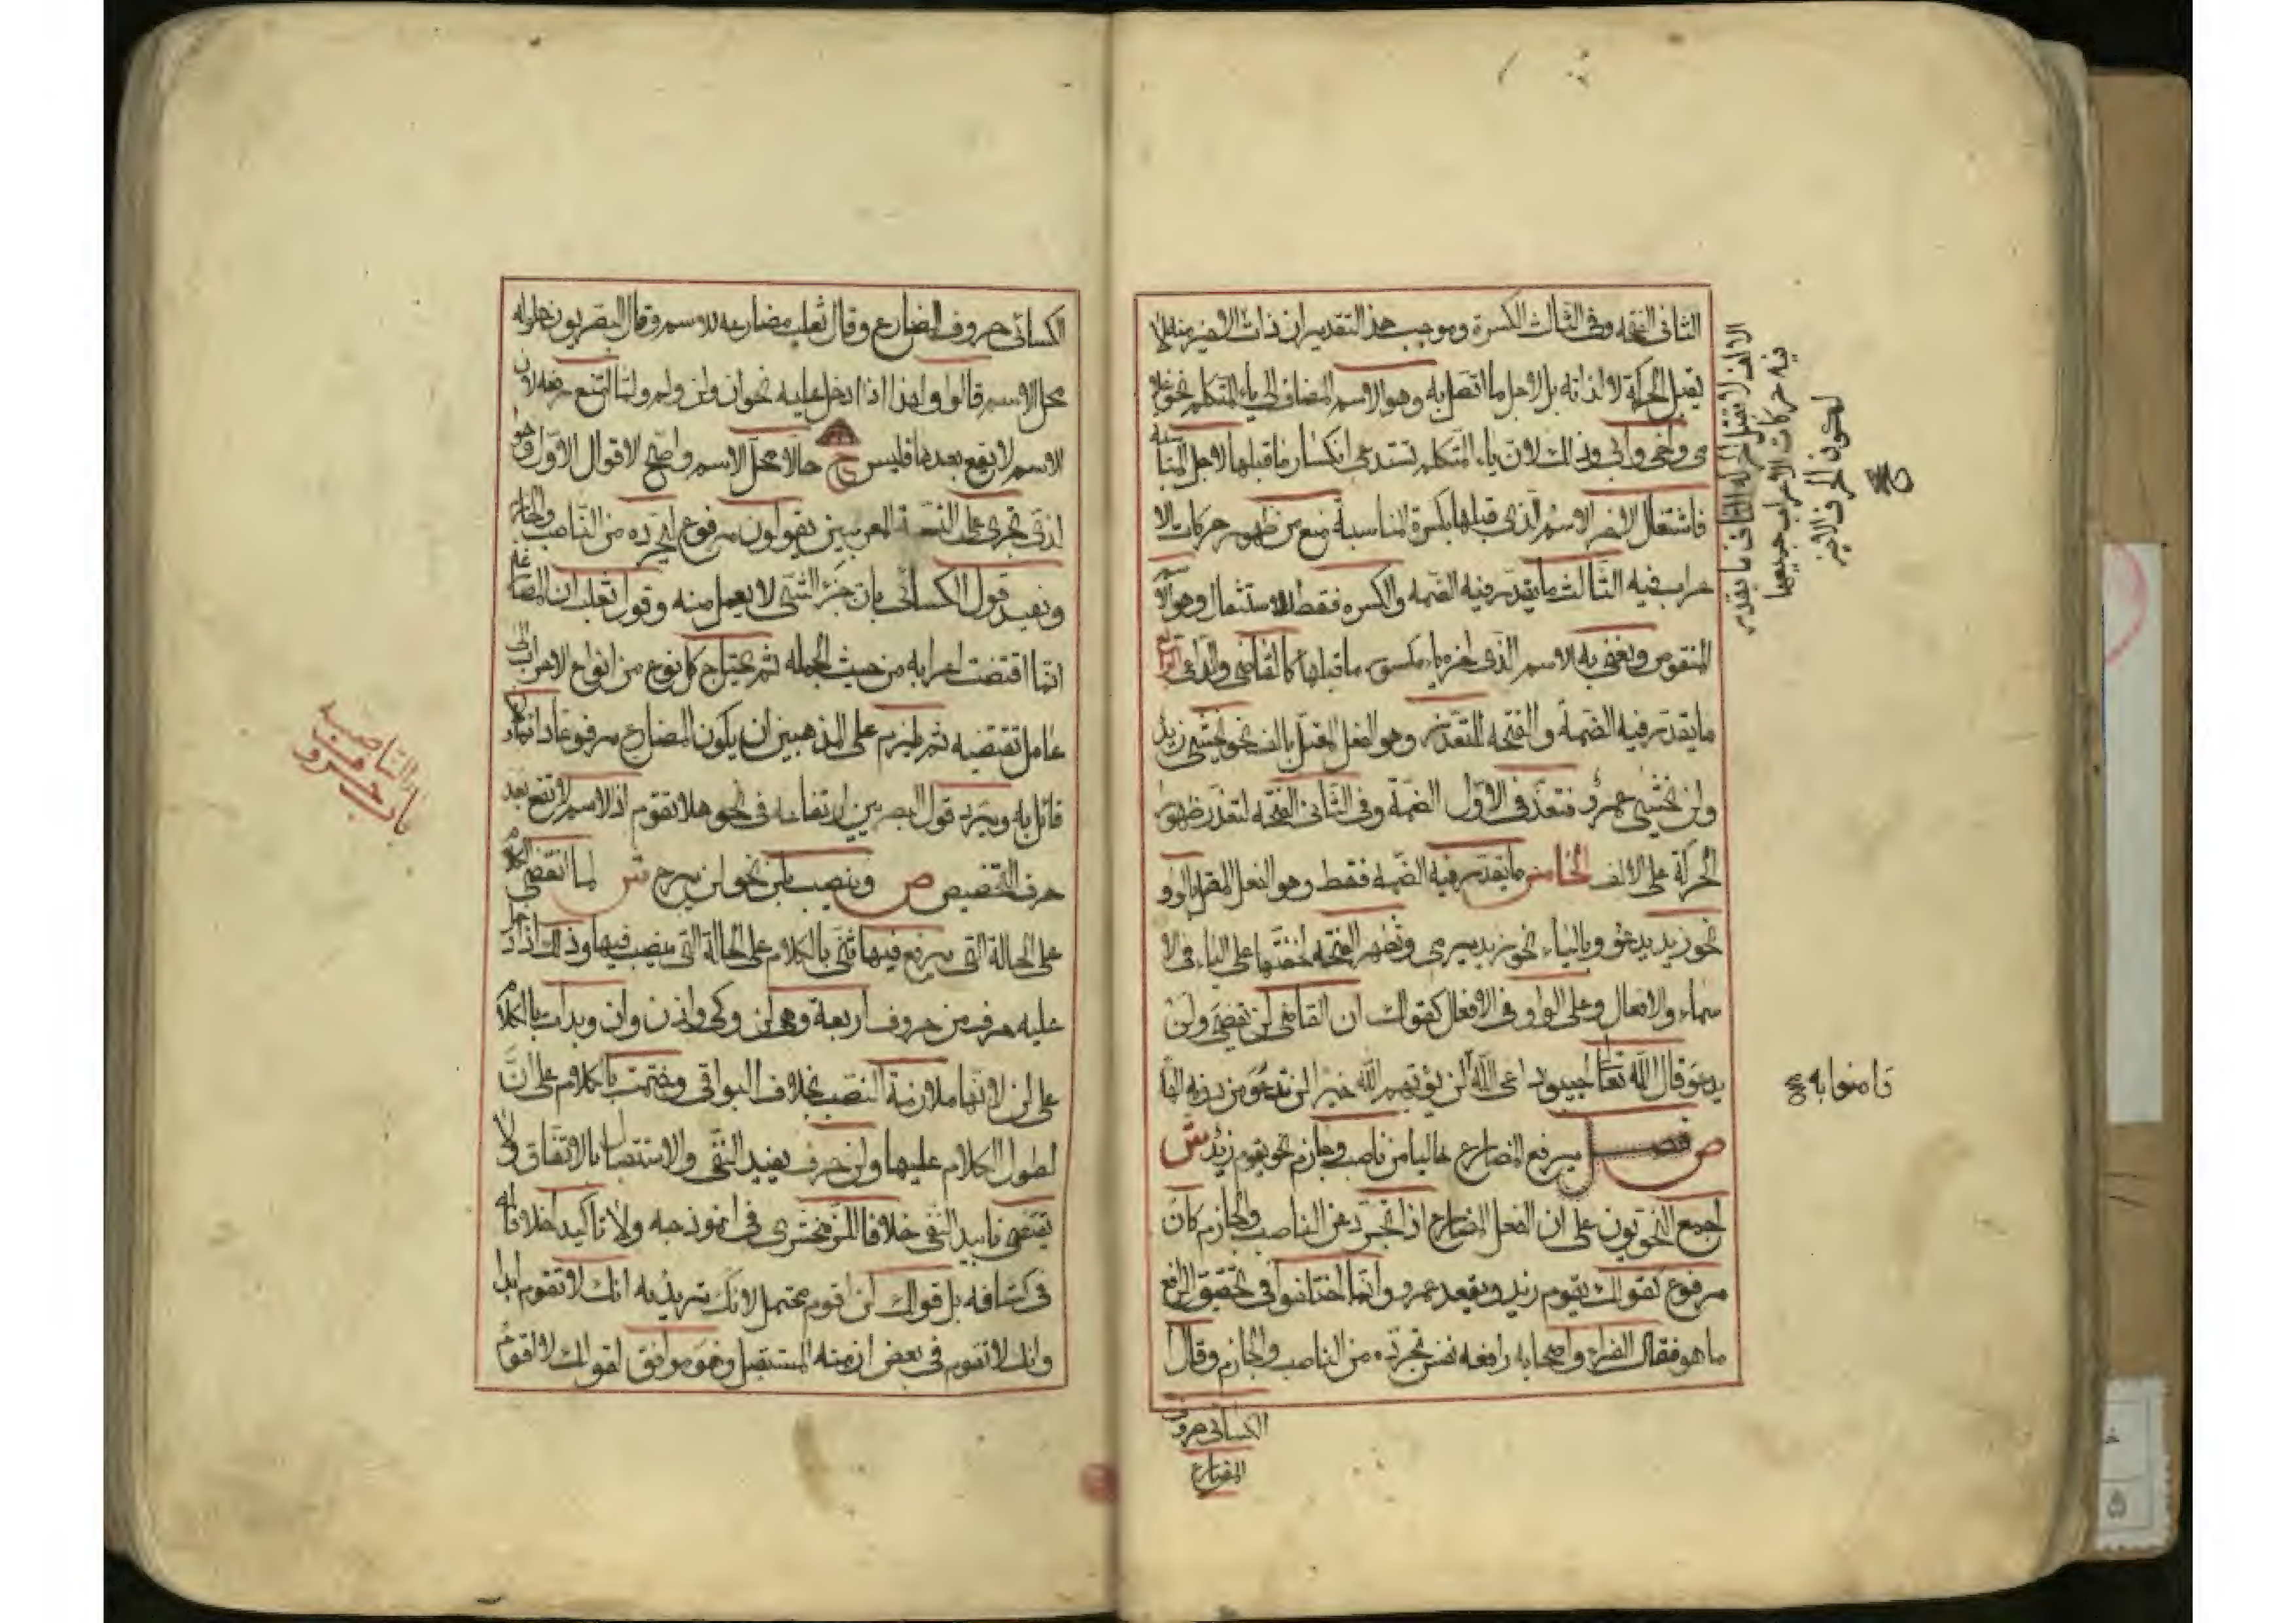 الثانى الفتحه وفى الثالث الكسرة وموجب هذا التقدير ان ذات الالف منه لا
يقبل الحركة لا لذاته بل لاجل ما اتصل به وهو الاسم المضاف الى ياء المتكلم نحو غلا
مى واخى وابى وذلك لان ياء المتكلم تستدعى انكسار ما قبلها لاجل المنا سبه
فاشتغال اخر الاسم الذى قبلها بكسرة المناسبة منع من ظهور حركات الا
عراب فيه الثالث ما يقدر فيه الضمه والكسره فقط للاستثقال وهو الاسم
المنقوص ونعنى به الاسم الذى اخره ياء مكسور ما قبلها كالقاضى والداعى الرابع
ما يقدر فيه الضمة والفتحه للتعذر وهو الفعل المعتل بالف نحو يخشى زيد
ولن يخشى عمرو فتقدر فى الاول الضمة وفى الثانى الفتحه لتعذر ظهور
الحركة على الالف الخامس ما يقدر فيه الضمه فقط وهو الفعل المعتل بالواو
نحو زيد يدعو وبالياء نحو زيد يرمى وتظهر الفتحه لخفتها على الياء فى الا
سماء والافعال وعلى الواو فى الافعال كقولك ان القاضى لن يقضى ولن
يدعو قال الله تعا اجيبوا داعى الله لن يؤتيهم الله خيرا لن ندعو من دونه الها
ص فصل يرفع المضارع خاليا من ناصب وجازم نحو يقوم زيد ش
اجمع النحويون على ان الفعل المضارع اذا تجرد عن الناصب والجازم كان
مرفوع كقولك يقوم زيد ويقعد عمرو وانما اختلفوا فى تحقيق الرافع
ما هو فقال الفراء واصحابه رافعه نفس تجرده من الناصب والجازم وقال
الكسائى حروف
المضارع
الالف لا تقبل الحركة الثانى ما يقدر
فيه حركات الاعراب جميعها
لكون الحرف الاخير
وامنوا به
الكسائى حروف المضارع وقال ثعلب مضارعه للاسم وقال البصريون حلوله
محل الاسم قالوا ولهذا اذا دخل عليه نحو ان ولن ولم ولما امتنع رفعه لان
الاسم لا يقع بعدها فليس ح حالا محل الاسم واصح الاقوال الاول وهو
الذى تجرى على السنة المعربين يقولون مرفوع لتجرده من الناصب والجازم
ويفسد قول الكسائى بان جزء الشى لا يعمل منه وقول ثعلب ان المضارعه
انما اقتضت اعرابه من حيث الجمله ثم يحتاج كل نوع من انواع الاعراب الى
عامل تقتضيه ثم يلزم على المذهبين ان يكون المضارع مرفوعا دائما ولا
قائل به ويرد قول البصريين ارتفاعه فى نحو هلا تقوم اذ الاسم لا تقع بعد
حرف التحضيض ص وينصب بلن نحو لن نبرح ش لما انقضى الكلام
على الحالة التى يرفع فيها ثنى بالكلام على الحالة التى ينصب فيها وذلك اذا دخل
عليه حرف من حروف اربعة وهى لن وكى واذن وان وبدات بالكلام
على لن لانها ملازمة النصب بخلاف البواقى وختمت بالكلام على ان
لطول الكلام عليها ولن حرف يفيد النفى والاستقبال بالاتفاق ولا
يقتضى تابيد النفى خلافا للزمخشرى فى انموذجه ولا تاكيد اخلافا له
فى كشافه بل قولك لن اقوم محتمل لانك تريد به انك لا تقوم ابدا
وانك لا تقوم فى بعض ازمنه المستقبل وهو موافق لقولك لا اقوم